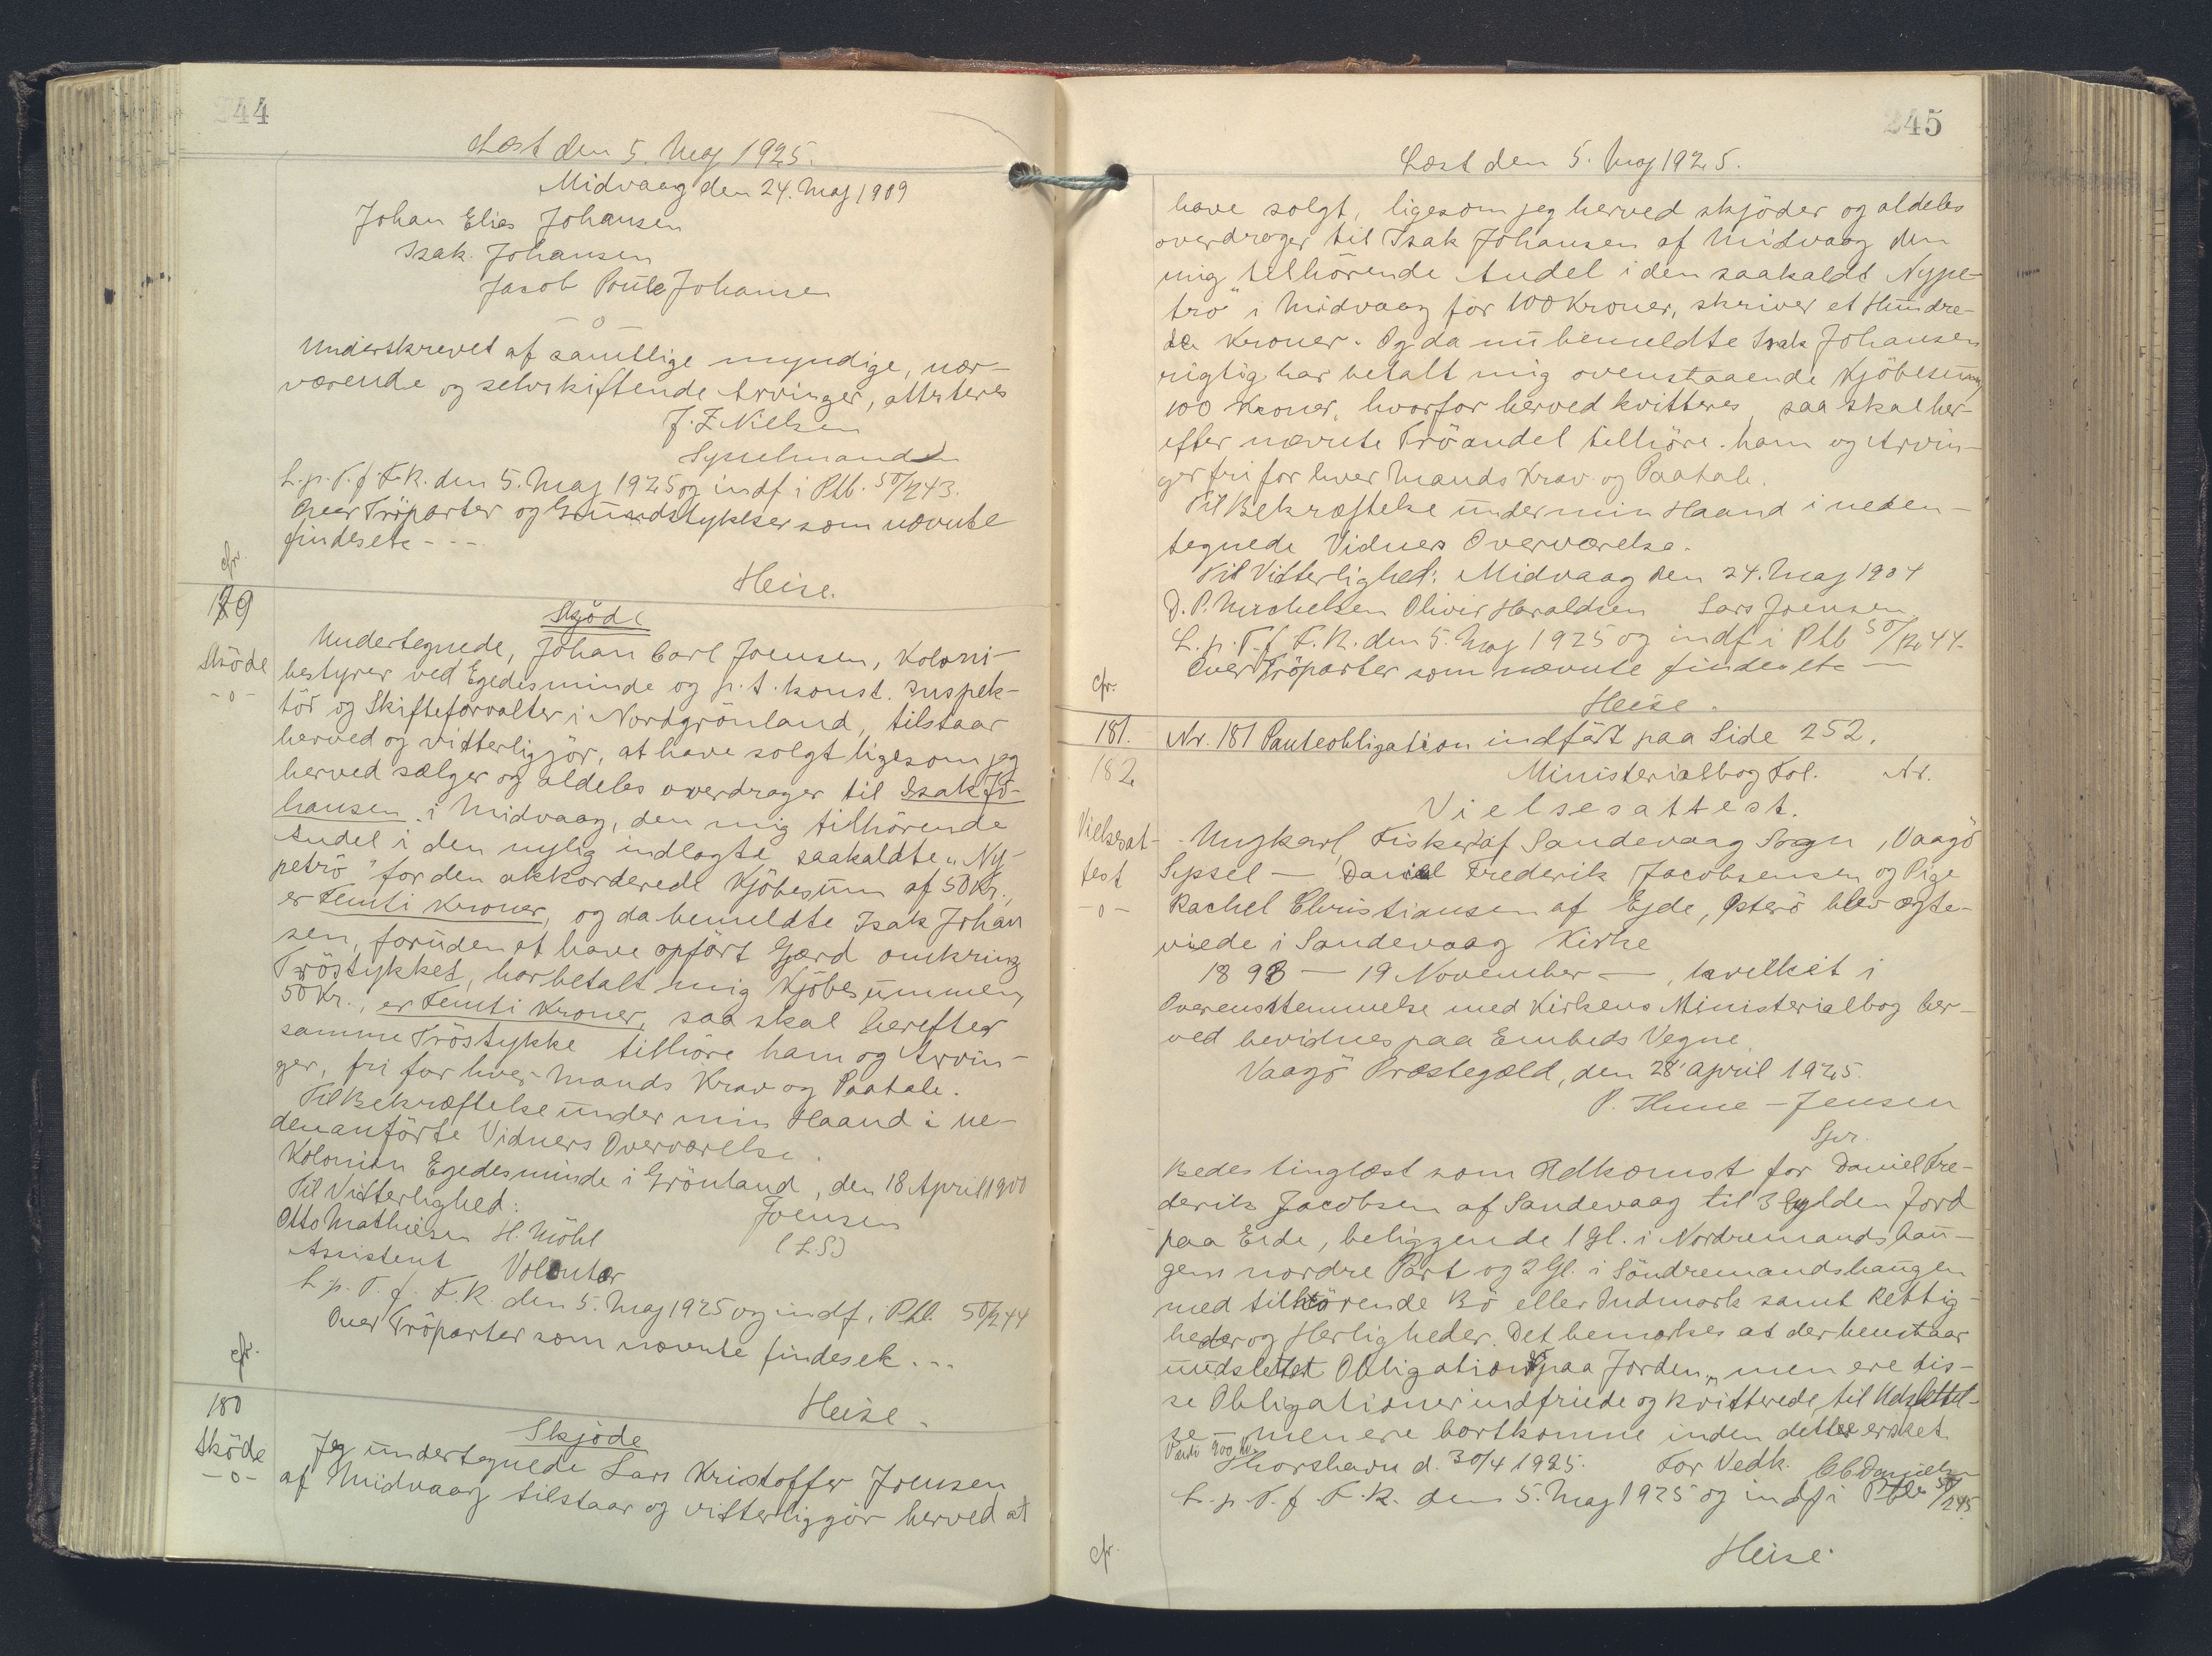 244
Læst den 5. Maj 1925.
Midvaag den 24. Maj 1909
Johan Elias Johansen
Isak Johansen
Jacob Poule Johansen
–o–
Underskrevet af samtlige myndige, nær-
værende og selvskiftende Arvinger, attesteres
J. Z. Nielsen
Sysselmanden
L. p. T. f. F. K. den 5. Maj 1925 og indf. i Ptb. 50/243.
Over Tröparter og Grundstykker som nævnte
findes etc - - -
cfr.
Heise.
179
Sköde
-o-
Skjöde
Undertegnede, Johan Carl Joensen, Koloni-
bestyrer ved Egedesminde og p. t. konst. Inspek-
tör og Skifteforvalter i Nordgrönland, tilstaar
herved og vitterliggjör, at have solgt ligesom jeg
herved sælger og aldeles overdrager til Isak Jo-
hansen i Midvaag, den mig tilhörende
Andel i den nylig indlagte saakaldte "Ny-
petrö" for den akkorderede Kjöbesum af 50 Kr.,
er Femti Kroner, og da bemeldte Isak Johan
sen, foruden at have opfört Gjærd omkring
Tröstykket, har betalt mig Kjöbesummen,
50 Kr., er Femti Kroner, saa skal herefter
samme Tröstykke tilhöre ham og Arvin-
ger, fri for hver Mands Krav og Paatale.
Til Bekræftelse under min Haand i ne-
denanförte Vidners Overværelse.
Kolonien Egedesminde i Grönland, den 18 April 1900
Til Vitterlighed:
Joensen
Otto Mathiesen H. Möhl
(L.S.)
Assistent Volontær
L. p. T. f. F. K. den 5. Maj 1925 og indf. i Ptb. 50/244
Over Tröparter som nævnte findes etc . . .
cfr.
Heise.
180
Sköde
-o-
Skjöde
Jeg undertegnede Lars Kristoffer Joensen
af Midvaag tilstaar og vitterliggjör herved at
245
Læst den 5. Maj 1925.
have solgt, ligesom jeg herved skjöder og aldeles
overdrager til Isak Johansen af Midvaag den
mig tilhörende Andel i den saakaldt Nype-
trö" i Midvaag for 100 Kroner, skriver et Hundre-
de Kroner. Og da nu bemeldte Isak Johansen
rigtig har betalt mig ovenstaaende Kjöbesum,
100 Kroner, hvorfor herved kvitteres, saa skal her-
efter nævnte Tröandel tilhöre ham og Arvin-
ger fri for hver Mands Krav og Paatale.
Til Bekræftelse under min Haand i neden-
tegnede Vidners Overværelse.
Til Vitterlighed: Midvaag den 24. Maj 1904
D. P. Michelsen Oliver Haraldsen Lars Joensen
L. p. T. f. F. K. den 5. Maj 1925 og indf. i Ptb 50/244.
Over Tröparter som nævnte findes etc —
cfr.
Heise.
181. Nr. 181 Panteobligation indfört paa Side 252.
182
Ministerialbog Fol. Nr.
Vielsesattest.
Vielsesat-
test
-o-
Ungkarl, Fisker af Sandevaag Sogn, Vaagö
Syssel — Daniel Frederik Jacobsensen og Pige
Rachel Christiansen af Ejde, Österö blev ægte-
viede i Sandevaag Kirke
1898 — 19 November —, hvilket i
Overensstemmelse med Kirkens Ministerialbog her-
ved bevidnes paa Embeds Vegne.
Vaagö Præstegæld, den 28' April 1925.
P. Hune-Jensen
Spr.
Bedes tinglæst som Adkomst for Daniel Fre-
derik Jacobsen af Sandevaag til 3 Gylden Jord
paa Eide, beliggende 1 Gl. i Nordremandshau-
gens nordre Part og 2 Gl. i Söndremandshaugen
med tilhörende Bö eller Indmark samt Rettig-
heder og Herligheder. Det bemærkes at der henstaar
uudslettet Obligation paa Jorden, men ere dis-
se Obligationer indfriede og kvitterede til Udslettel-
se – men ere bortkomne inden dette er sket.
Værdi 900 Kr.
Thorshavn d. 30/4 1925. For Vedk. C. C. Danielsen
L. p. T. f. F. K. den 5. Maj 1925 og indf i Ptb. 50/245.
cfr.
Heise.